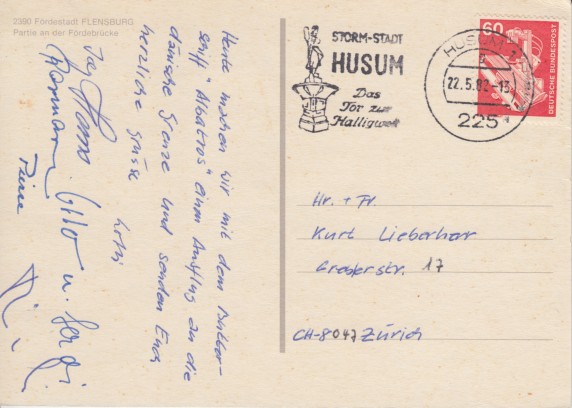 2390 Fördestadt FLENSBURG
Partie an der Fördebrücke
Heute machen wir mit dem Butter-
schiff "Albatros" einen Ausflug an die
dänische Grenze und senden Euch
herzliche Grüsse
Lotti
Hans
Hermann
Otto u.
Pierre
STORM-STADT
HUSUM
Das
Tor zur
Halligwelt
HUSUM 1
22.5.82-13
225
60
DEUTSCHE BUNDESPOST
Hr. + Fr.
Kurt Lieberherr
17
CH-8047 Zürich